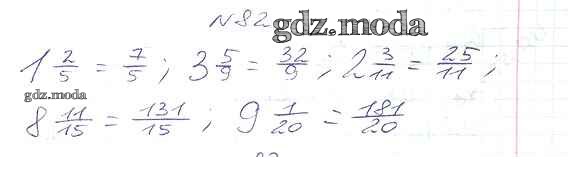 N 82 gdz.moda
1 2/5 = 7/5 ; 3 5/9 = 32/9 ; 2 3/11 = 25/11 ;
gdz.moda
8 11/15 = 131/15 ; 9 1/20 = 181/20